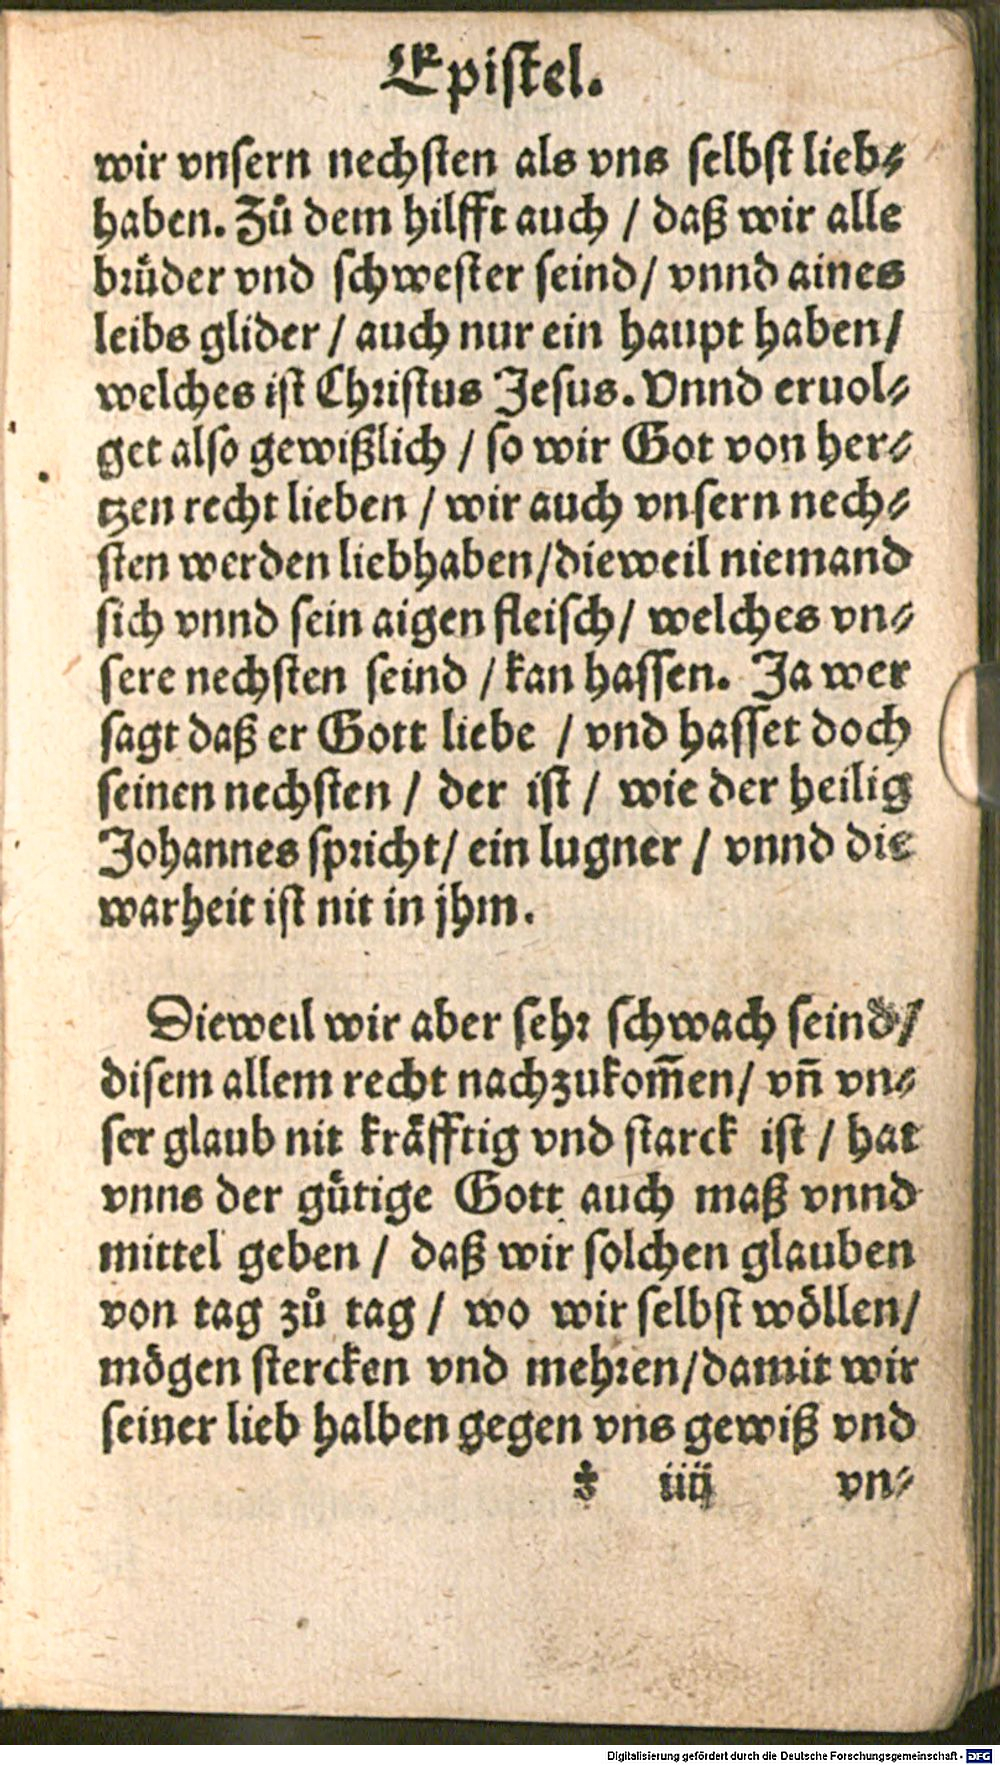 Epistel.
wir vnsern nechsten als vns selbst lieb⸗
haben. Zů dem hilfft auch / daß wir alle
brůder vnd schwester seind / vnnd aines
leibs glider / auch nur ein haupt haben /
welches ist Christus Jesus. Vnnd eruol⸗
get also gewißlich / so wir Got von her⸗
tzen recht lieben / wir auch vnsern nech⸗
sten werden liebhaben / dieweil niemand
sich vnnd sein aigen fleisch / welches vn⸗
sere nechsten seind / kan hassen. Ja wer
sagt daß er Gott liebe / vnd hasset doch
seinen nechsten / der ist / wie der heilig
Johannes spricht / ein lugner / vnnd die
warheit ist nit in jhm.
Dieweil wir aber sehr schwach seind /
disem allem recht nachzukom̄en / vn̄ vn⸗
ser glaub nit kräfftig vnd starck ist / hat
vnns der gůtige Gott auch maß vnnd
mittel geben / daß wir solchen glauben
von tag zů tag / wo wir selbst wöllen /
mögen stercken vnd mehren / damit wir
seiner lieb halben gegen vns gewiß vnd
iiij vn⸗
Digitalisierung gefördert durch die Deutsche Forschungsgemeinschaft - DFG